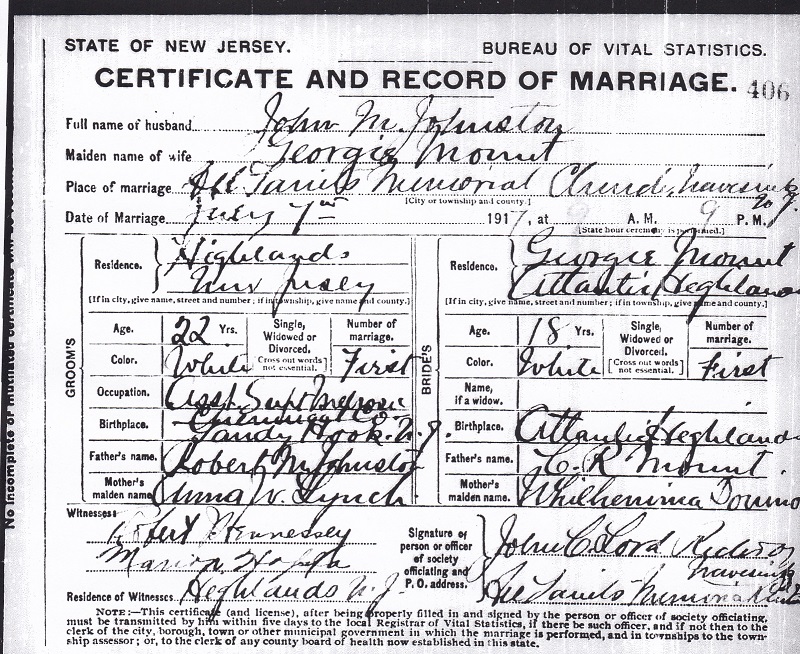 STATE OF NEW JERSEY. BUREAU OF VITAL STATISTICS.
CERTIFICATE AND RECORD OF MARRIAGE. 406
Full name of husband John M. Johnston
Maiden name of wife Georgie Mount
Place of marriage All Saints Memorial Church, Navesink
N.J.
[City or township and county.]
Date of Marriage July 7 1917, at 9 A. M. 9 P. M.
[State hour ceremony is performed.]
GROOM'S
Residence. Highlands
New Jersey
[If in city, give name, street and number; if in township, give name and county.]
Age. 22 Yrs. Single, Widowed or Divorced. Number of marriage.
Color. White [Cross out words not essential.] First
Occupation. Asst Supt
Birthplace. Sandy Hook. N.J.
Father's name. Robert M. Johnston
Mother's maiden name. Anna V. Lynch
BRIDE'S
Residence. Georgie Mount
Atlantic Highlands
[If in city, give name, street and number; if in township, give name and county.]
Age. 18 Yrs. Single, Widowed or Divorced. Number of marriage.
Color. White [Cross out words not essential.] First
Name, if a widow.
Birthplace. Atlantic Highlands
Father's name. C. R. Mount.
Mother's maiden name. Whilhemina
Witnesses Robert Hennessey
Marion
Residence of Witnesses Highlands N.J.
Signature of person or officer of society officiating and P. O. address.
John C. Lord Rector
Navesink
All Saints Memorial
NOTE:—This certificate (and license), after being properly filled in and signed by the person or officer of society officiating,
must be transmitted by him within five days to the local Registrar of Vital Statistics, if there be such officer, and if not then to the
clerk of the city, borough, town or other municipal government in which the marriage is performed, and in townships to the town-
ship assessor; or, to the clerk of any county board of health now established in this state.